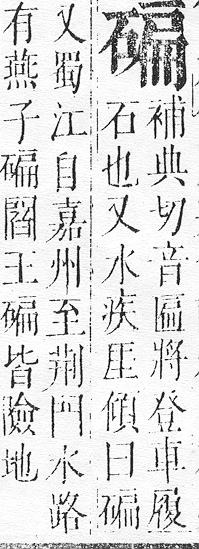 碥
補典切音匾將登車履
石也又水疾厓傾曰碥
又蜀江自嘉州至荆門水路
有燕子碥閻王碥皆險地